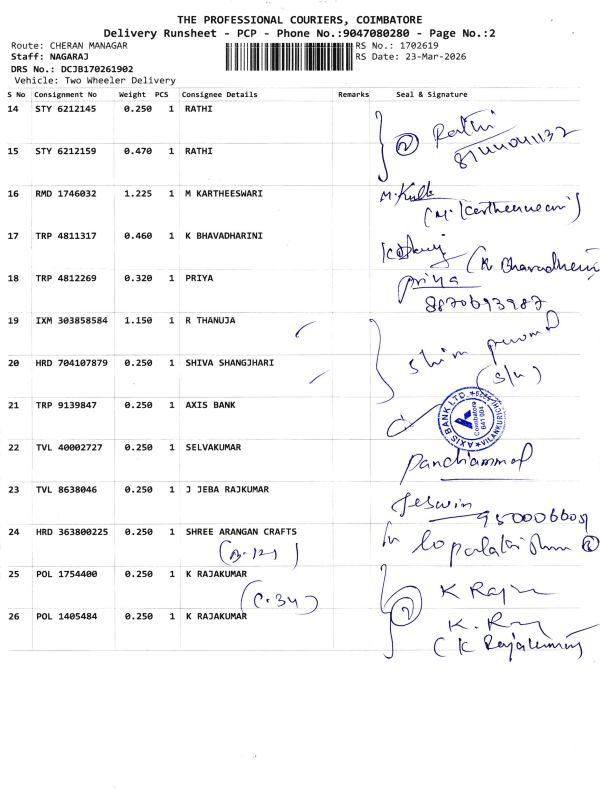 THE PROFESSIONAL COURIERS, COIMBATORE
Delivery Runsheet - PCP - Phone No.:9047080280 - Page No.:2
Route: CHERAN MANAGAR RS No.: 1702619
Staff: NAGARAJ RS Date: 23-Mar-2026
DRS No.: DCJB170261902
Vehicle: Two Wheeler Delivery
S No Consignment No Weight PCS Consignee Details Remarks Seal & Signature
14 STY 6212145 0.250 1 RATHI
② Rathi
15 STY 6212159 0.470 1 RATHI
16 RMD 1746032 1.225 1 M KARTHEESWARI
17 TRP 4811317 0.460 1 K BHAVADHARINI
(K Bhavadharini
18 TRP 4812269 0.320 1 PRIYA Priya
8870693987
19 IXM 303858584 1.150 1 R THANUJA
20 HRD 704107879 0.250 1 SHIVA SHANGJHARI
21 TRP 9139847 0.250 1 AXIS BANK
AXIS BANK LTD. Coimbatore 641 004
22 TVL 40002727 0.250 1 SELVAKUMAR
Panchiammal
23 TVL 8638046 0.250 1 J JEBA RAJKUMAR Jeswin
24 HRD 363800225 0.250 1 SHREE ARANGAN CRAFTS
(B-121)
25 POL 1754400 0.250 1 K RAJAKUMAR
(C-34) ②
26 POL 1405484 0.250 1 K RAJAKUMAR
(K Rajakumar)